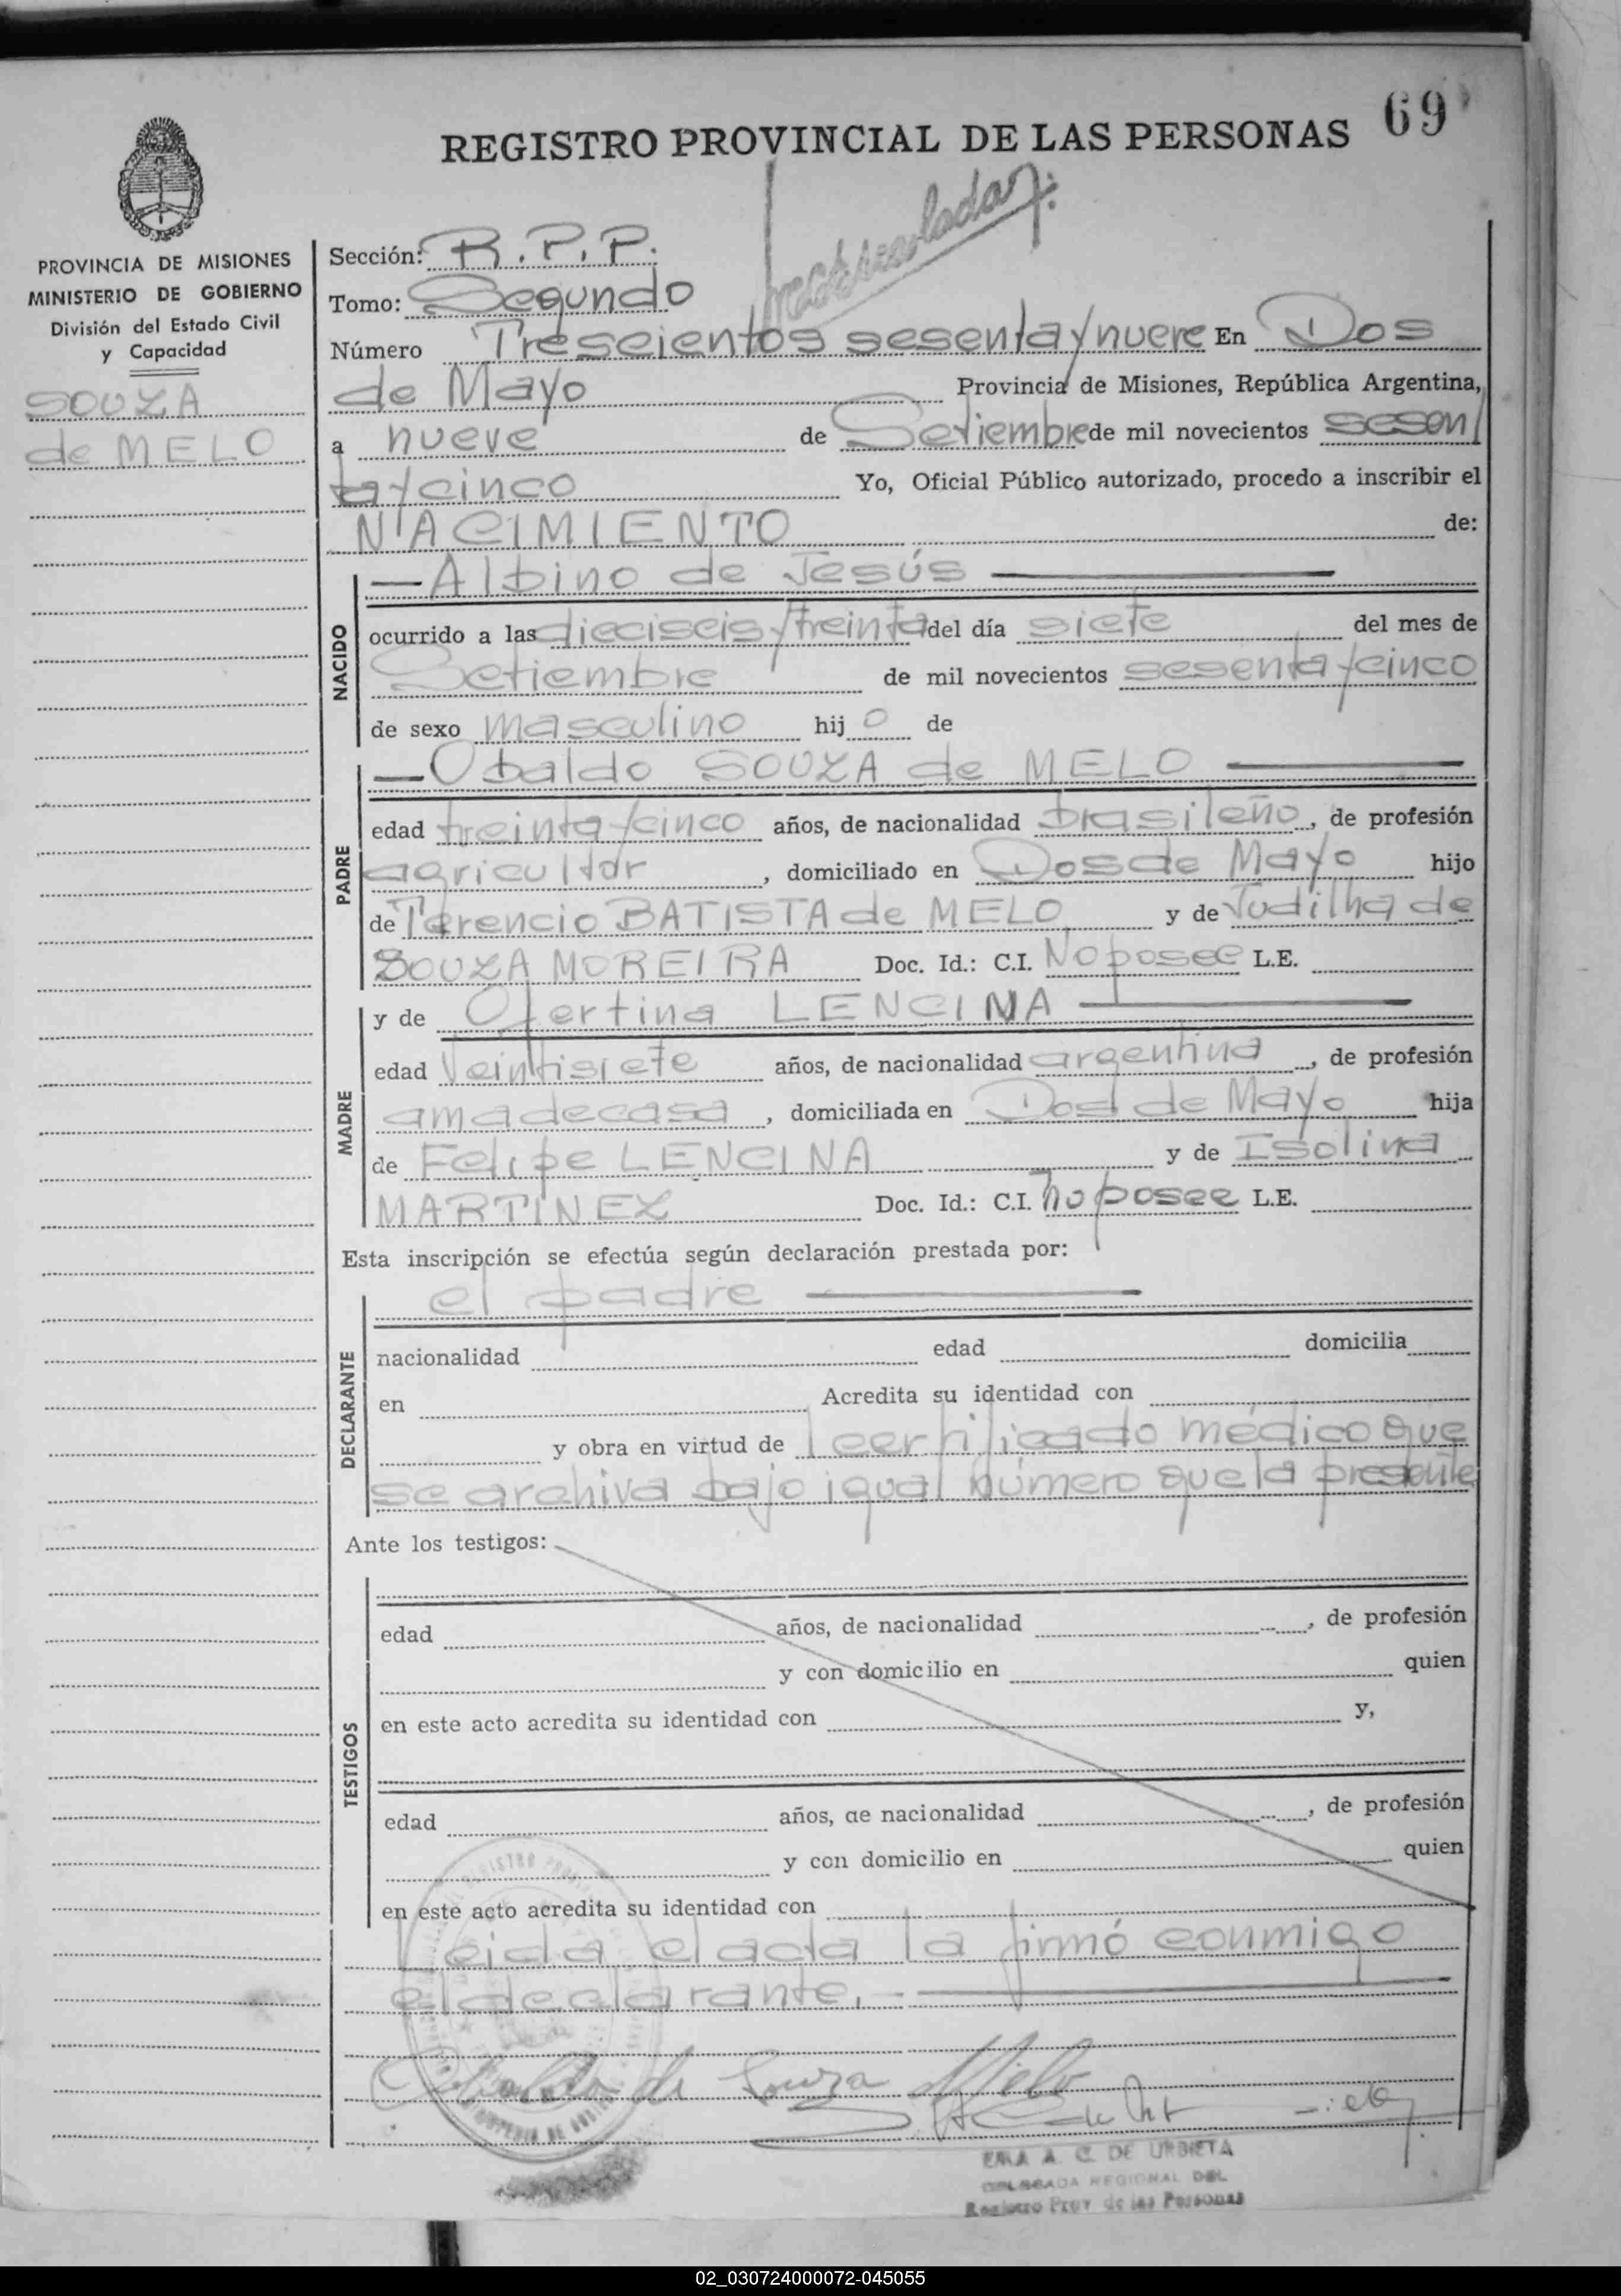 69
REGISTRO PROVINCIAL DE LAS PERSONAS
PROVINCIA DE MISIONES
MINISTERIO DE GOBIERNO
División del Estado Civil
y Capacidad
SOUZA
de MELO
Sección: R.P.P.
Tomo: Segundo
Número Trescientos sesenta y nueve En Dos
de Mayo Provincia de Misiones, República Argentina,
a nueve de Setiembre de mil novecientos sesen
ta y cinco Yo, Oficial Público autorizado, procedo a inscribir el
NACIMIENTO de:
NACIDO
— Albino de Jesús —
ocurrido a las dieciseis y treinta del día siete del mes de
Setiembre de mil novecientos sesenta y cinco
de sexo masculino hijo de
PADRE
— Obaldo SOUZA de MELO —
edad treinta y cinco años, de nacionalidad brasileño, de profesión
agricultor, domiciliado en Dos de Mayo hijo
de Terencio BATISTA de MELO y de Judilha de
SOUZA MOREIRA Doc. Id.: C.I. No posee L.E.
MADRE
y de Ofertina LENCINA —
edad Veintisiete años, de nacionalidad argentina, de profesión
ama de casa, domiciliada en Dos de Mayo hija
de Felipe LENCINA y de Isolina
MARTINEZ Doc. Id.: C.I. no posee L.E.
Esta inscripción se efectúa según declaración prestada por:
DECLARANTE
el padre —
nacionalidad edad domicilia
en Acredita su identidad con
y obra en virtud de certificado médico que
se archiva bajo igual número que la presente
Ante los testigos:
TESTIGOS
edad años, de nacionalidad , de profesión
y con domicilio en quien
en este acto acredita su identidad con y,
edad años, de nacionalidad , de profesión
y con domicilio en quien
en este acto acredita su identidad con
Leida el acta la firmó conmigo
el declarante. —
Obaldo de Souza Melo
EMA A. C. DE URBIETA
DELEGADA REGIONAL DEL
Registro Prov. de las Personas
02_030724000072-045055